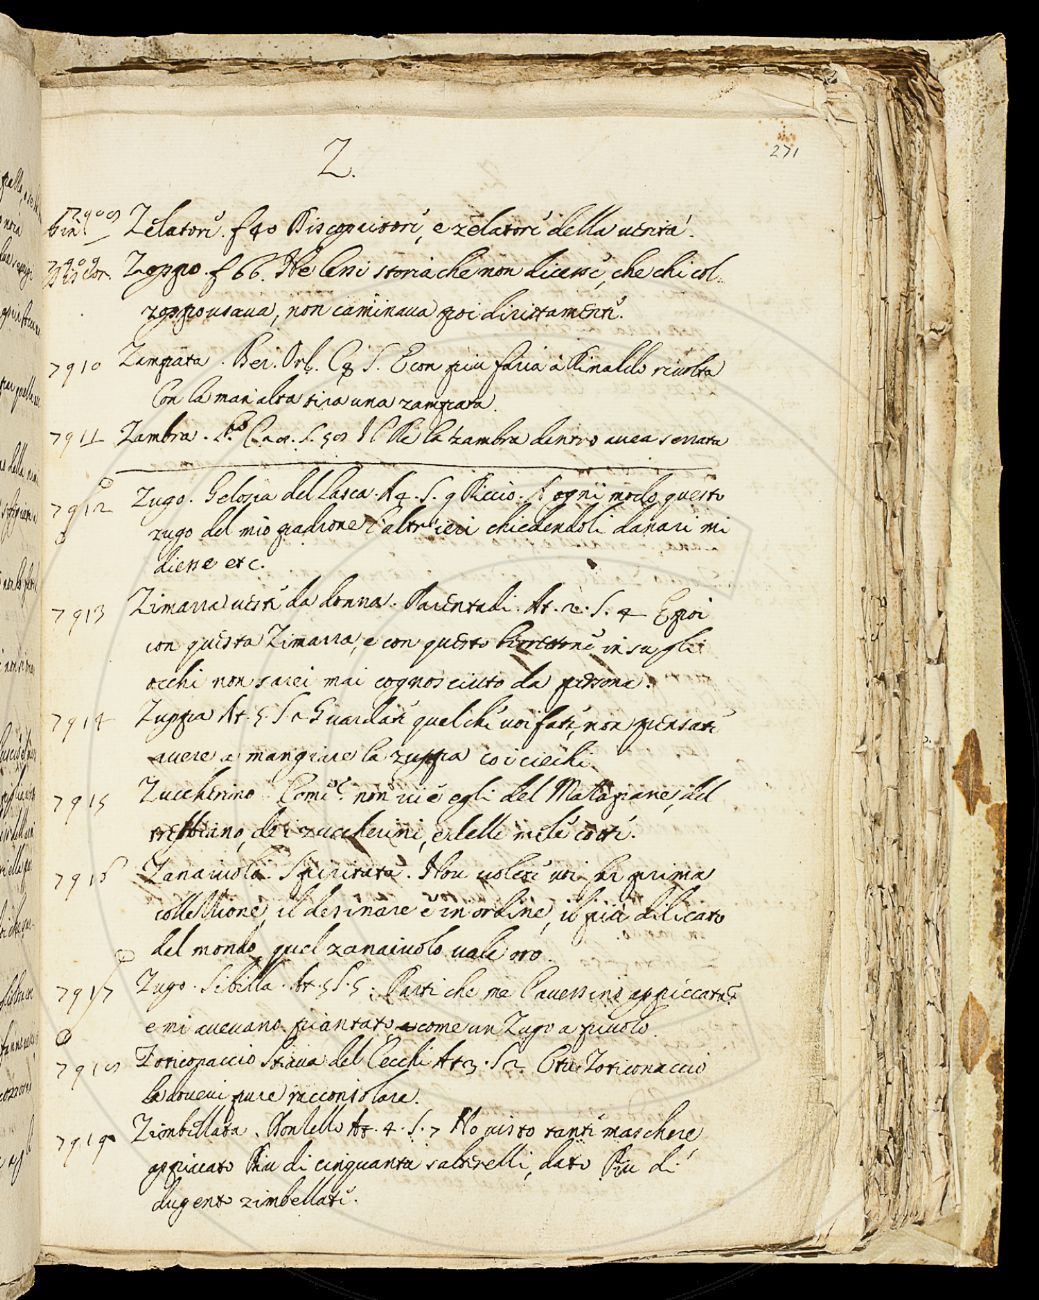 Z.
271
7908 Zelatori. f 40 Riscquitori, e zelatori della uerità.
7909 Zoppo. f 66. Ne lessi storia che non dicesse, che chi col
zoppo usaua, non caminaua poi dirittamente.
7910 Zampata. Ber. Orl. C 8 S. E con piu furia a Rinaldo riuolta
Con la man alta tira una zampata.
7911 Zambra. Il Re la zambra dentro auea serrata
7912 Zugo. Gelosia del Lasca. At. 4. S. 9 Riccio. ogni modo questo
zugo del mio padrone l'altr'ieri chiedendoli danari mi
disse etc.
7913 Zimarra uesti da donna. Parentadi. At. 2. S. 4 E poi
con questa Zimarra, e con questo in su gli
occhi non sarei mai cognosciuto da persona.
7914 Zuppa At. 5. S Guardate quel che uoi fate, non pensate
auere a mangiare la zuppa co i ciechi.
7915 Zuccherino. non ui è egli del Matapane, del
trebbiano, de i zuccherini, e delle mele cotte.
7916 Zanaiuolo. Spiritata. Non uolete uoi far prima
collettione, il desinare è in ordine, il più dilicato
del mondo, quel zanaiuolo uale oro.
7917 Zugo. Sibilla. At. 5 S. 5. Parti che me l'auessino appiccata?
e mi aueuano piantato come un Zugo a piuolo.
7918 Zoticonaccio Stiaua del Cecchi At 3. S 2 O tu Zoticonaccio
la doueui pure racconsolare.
7919 Zimbellata. Donzello At. 4. S. 7 Ho uisto tante maschere,
appiccato Piu di cinquanta salterelli, dato Piu di
dugento zimbellate.